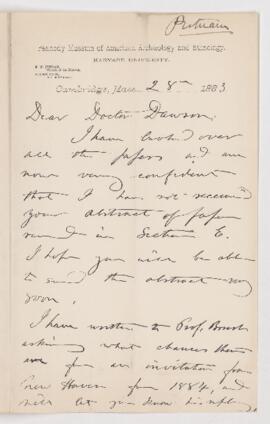 Putnam
Peabody Museum of American Archæology and Ethnology,
HARVARD UNIVERSITY.
Cambridge, Mass. 28th 1883
Dear Doctor Dawson,
I have looked over
all the papers and am
now very confident
that I have not received
your abstract of paper
read in Section E.
I hope you will be able
to send the abstract very
soon.
I have written to Prof. Brush
asking what chances there
are for an invitation from
New Haven for 1884, and
will let you know his reply